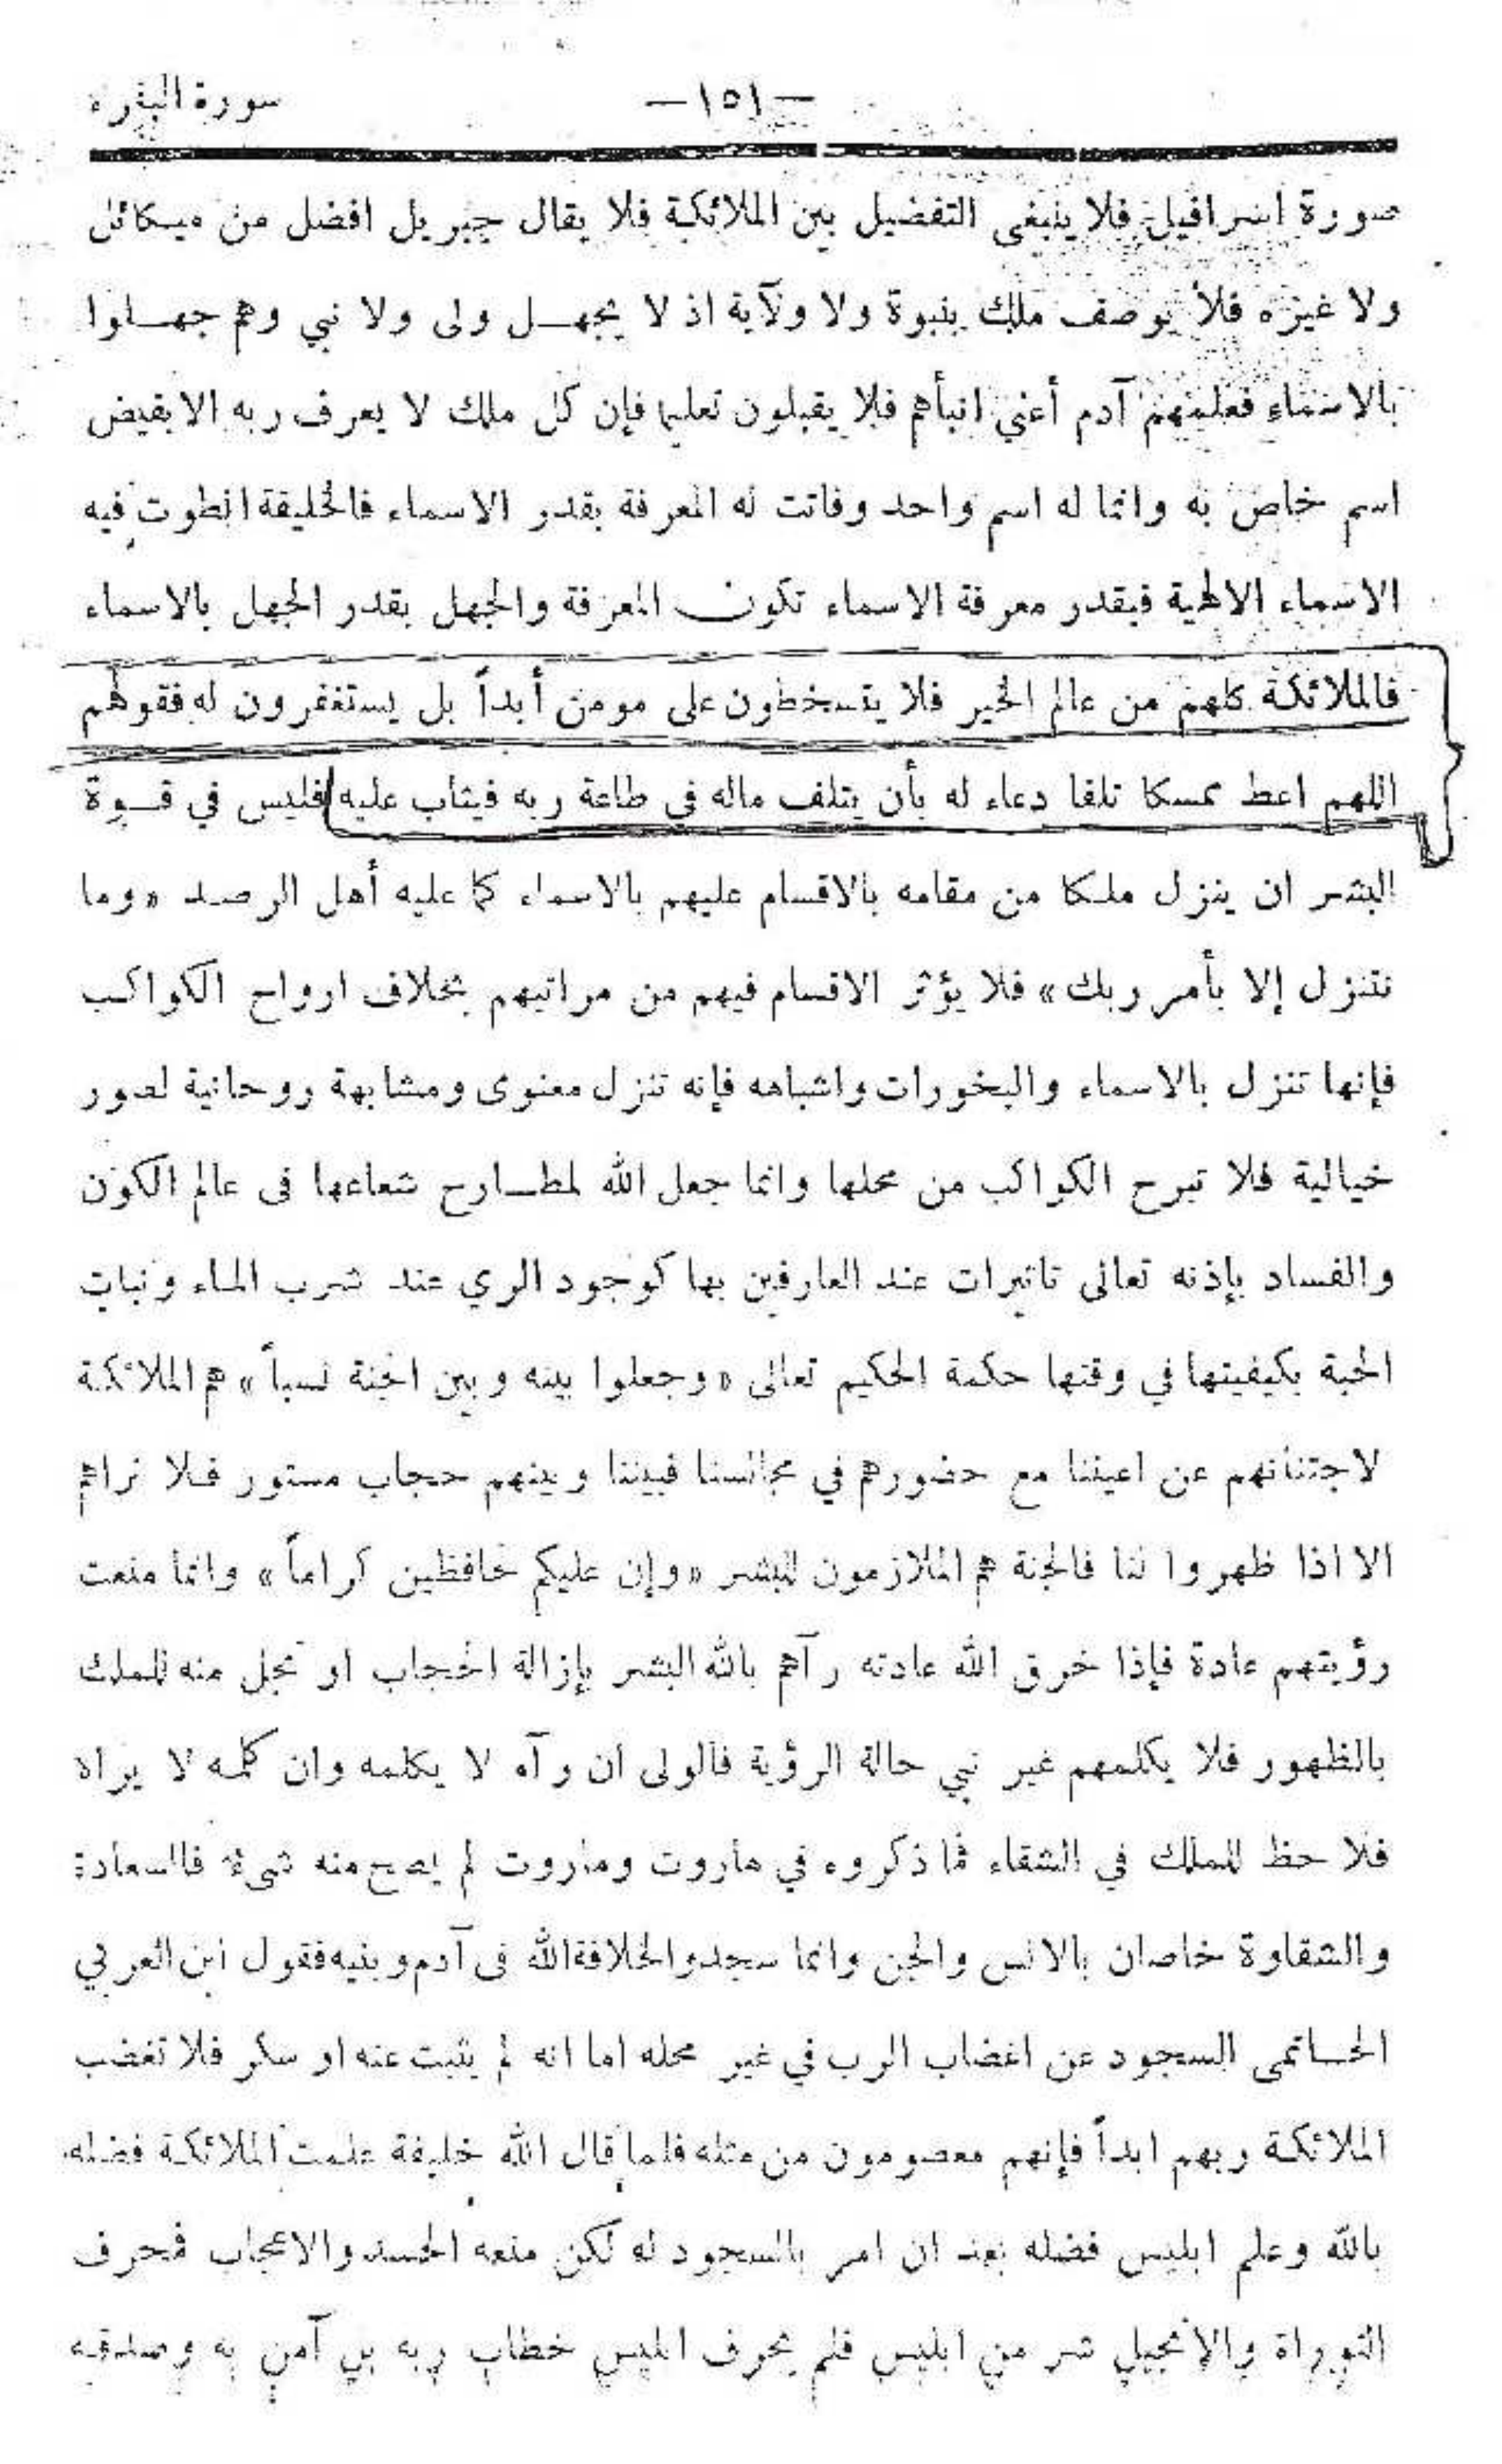 سورة البقرة
— ١٥١ —
صورة اسرافيل فلا ينبغى التفضيل بين الملائكة فلا يقال جبريل افضل من ميكائل
ولا غيره فلا يوصف ملك بنبوة ولا ولآية اذ لا يجهـــل ولى ولا نبي وهم جهـــلوا
بالاسماء فعلمهم آدم أعني انبأهم فلا يقبلون تعليما فإن كل ملك لا يعرف ربه الا بفيض
اسم خاص به وانما له اسم واحد وفاتت له المعرفة بقدر الاسماء فالخليقة انطوت فيه
الاسماء الالهية فبقدر معرفة الاسماء تكون المعرفة والجهل بقدر الجهل بالاسماء
فالملائكة كلهم من عالم الخير فلا يتسخطون على مومن أبداً بل يستغفرون له فقولهم
اللهم اعط ممسكا تلفا دعاء له بأن يتلف ماله في طاعة ربه فيثاب عليه فليس في قـــوة
البشر ان ينزل ملكا من مقامه بالاقسام عليهم بالاسماء كما عليه أهل الرصد «وما
نتنزل إلا بأمر ربك» فلا يؤثر الاقسام فيهم من مراتبهم بخلاف ارواح الكواكب
فإنها تنزل بالاسماء والبخورات واشباهه فإنه تنزل معنوى ومشابهة روحانية لصور
خيالية فلا تبرح الكواكب من محلها وانما جعل الله لمطـــارح شعاعها فى عالم الكون
والفساد بإذنه تعالى تاثيرات عند العارفين بها كوجود الري عند شرب الماء ونبات
الحبة بكيفيتها في وقتها حكمة الحكيم تعالى «وجعلوا بينه وبين الجنة نسباً» هم الملائكة
لاجتنانهم عن اعيننا مع حضورهم في مجالسنا فبيننا وبينهم حجاب مستور فلا نراهم
الا اذا ظهروا لنا فالجنة هم الملازمون للبشر «وإن عليكم لحافظين كراماً» وانما منعت
رؤيتهم عادة فإذا خرق الله عادته رآهم بالله البشر بإزالة الحجاب او تجل منه للملك
بالظهور فلا يكلمهم غير نبي حالة الرؤية فالولى ان رآه لا يكلمه وان كلمه لا يراه
فلا حظ للملك في الشقاء فما ذكروه في هاروت وماروت لم يصح منه شىء فالسعادة
والشقاوة خاصان بالانس والجن وانما سجدوا لخلافة الله فى آدم وبنيه فقول ابن العربي
الحـــاتمى السجود عن اغضاب الرب في غير محله اما انه لم يثبت عنه او سكر فلا تغضب
الملائكة ربهم ابداً فإنهم معصومون من مثله فلما قال الله خليفة علمت الملائكة فضله
بالله وعلم ابليس فضله بعد ان امر بالسجود له لكن منعه الحسد والاعجاب فمحرف
التوراة والإنجيل شر من ابليس فلم يحرف ابليس خطاب ربه بل آمن به وصدقه